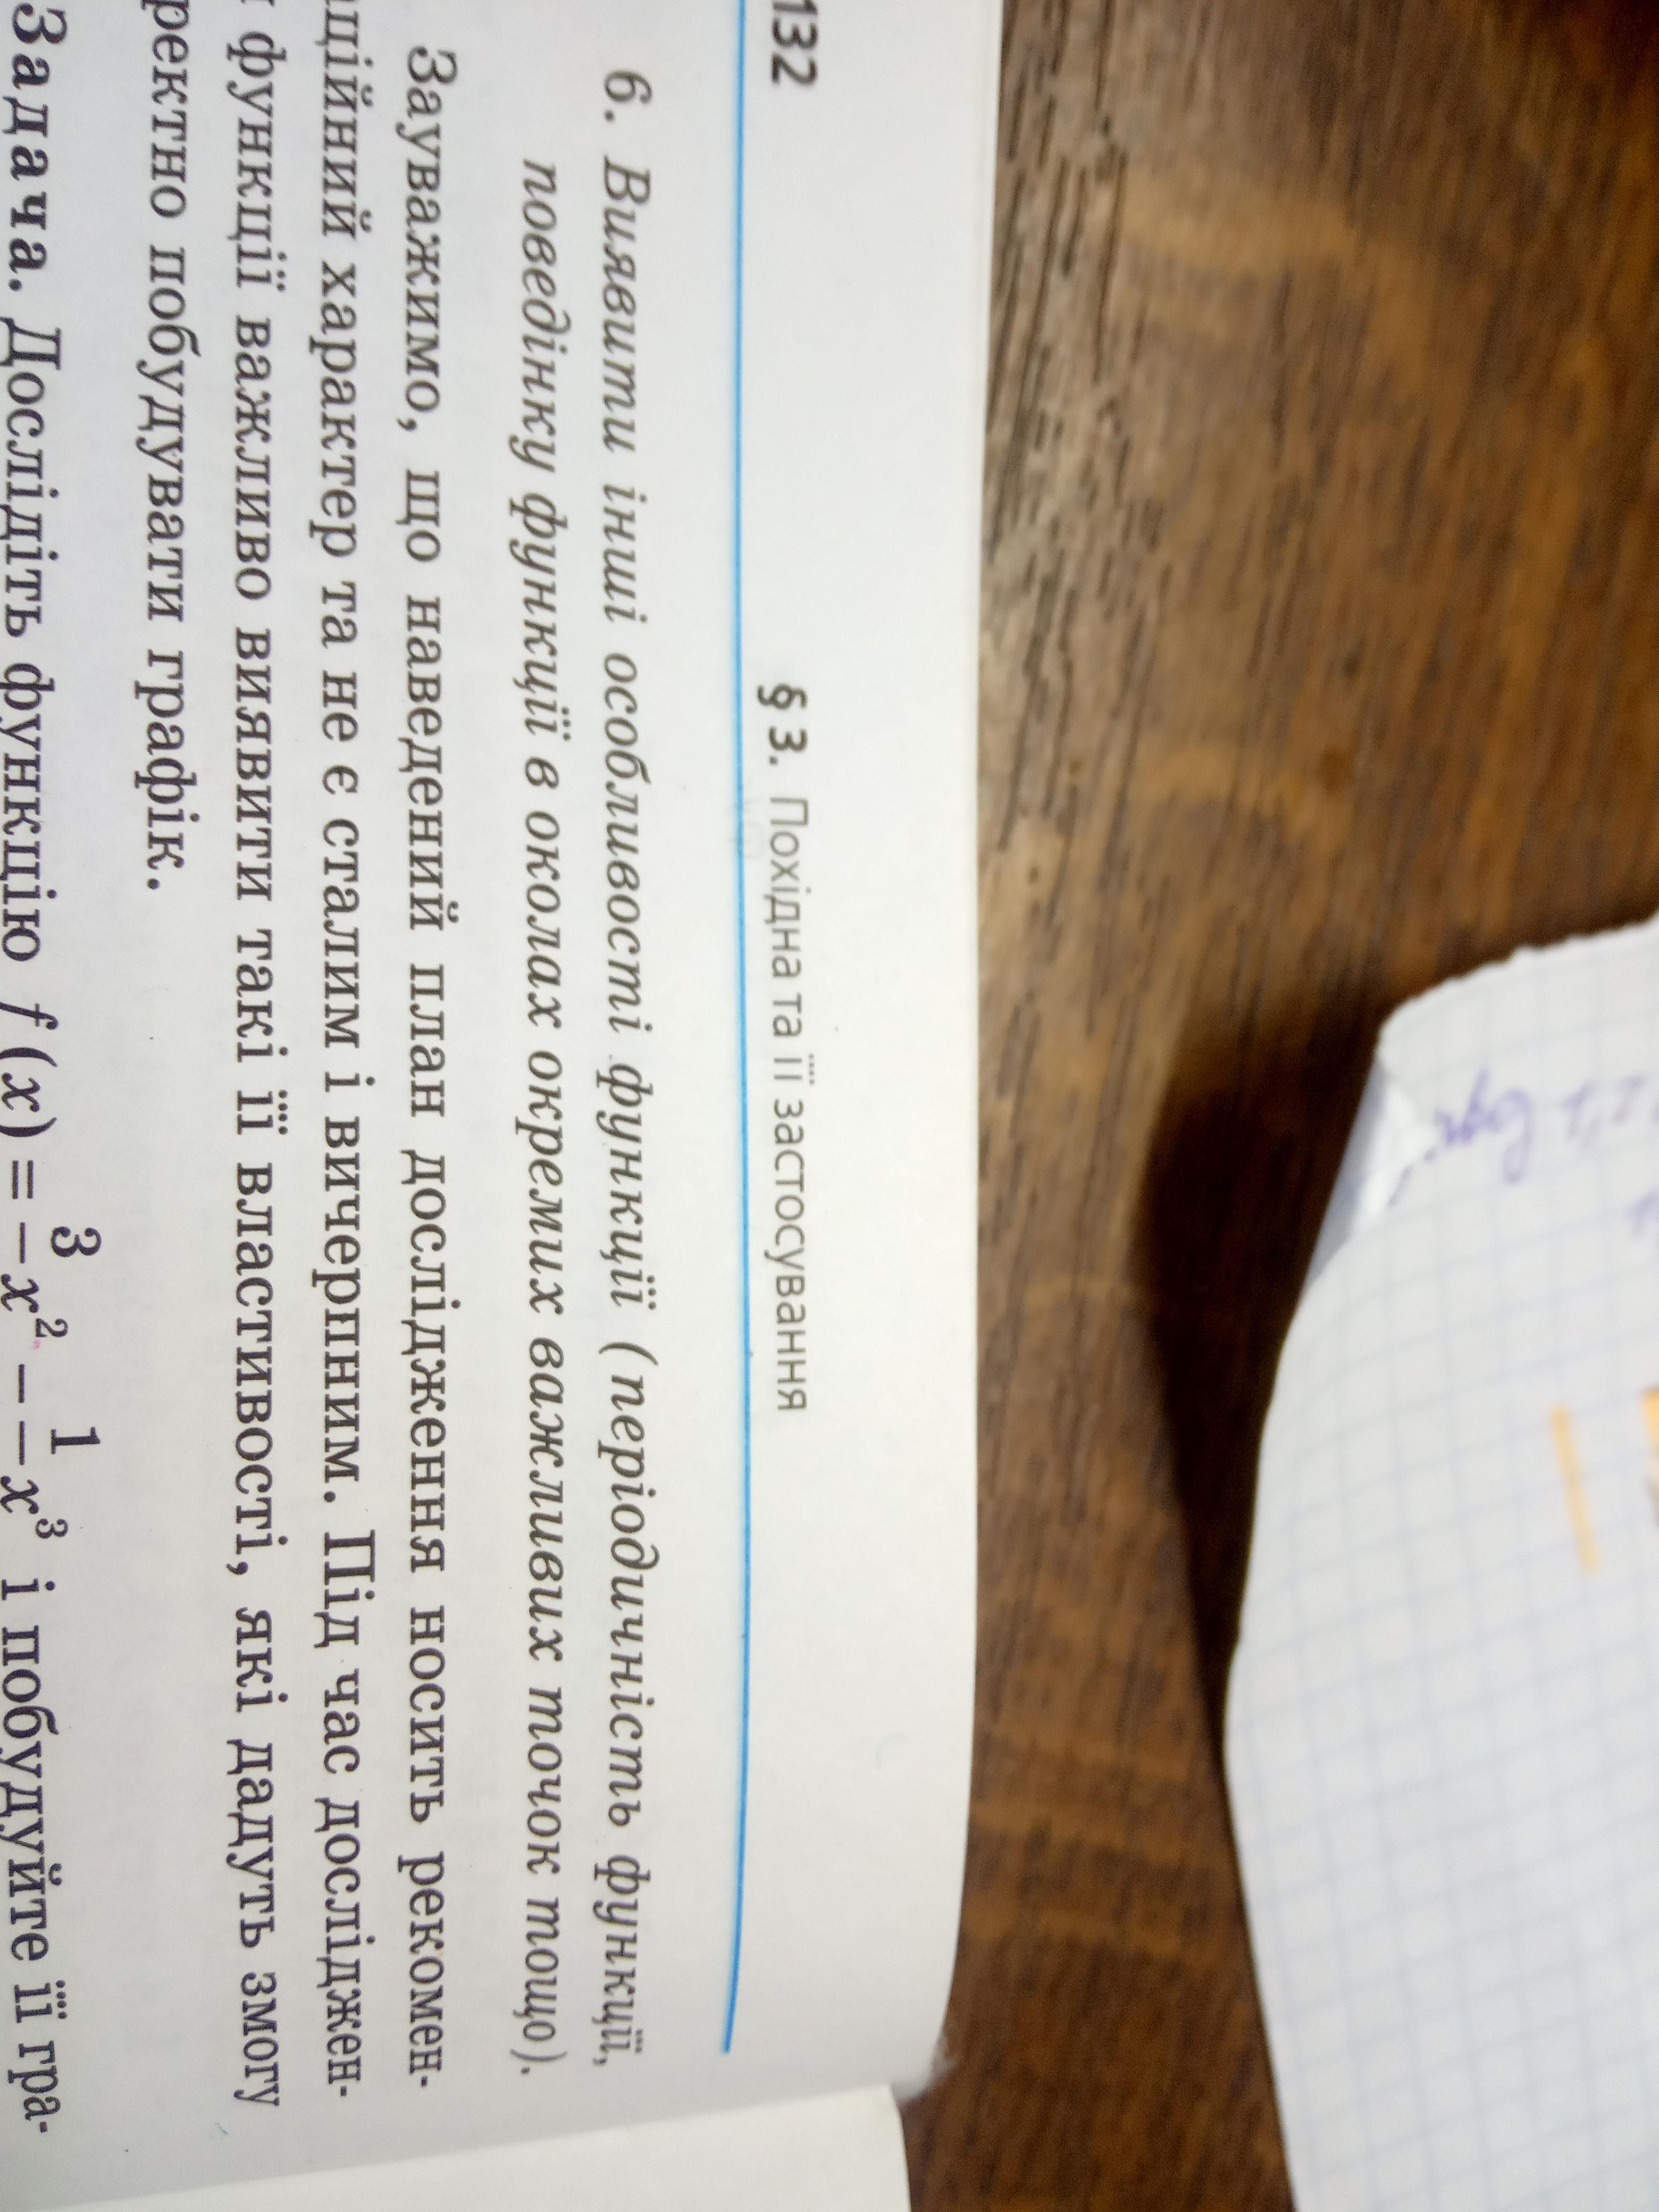 132
§ 3. Похідна та її застосування
6. Виявити інші особливості функції (періодичність функції,
поведінку функції в околах окремих важливих точок тощо).
Зауважимо, що наведений план дослідження носить рекомен-
ційний характер та не є сталим і вичерпним. Під час дослiджен-
функції важливо виявити такі її властивості, які дадуть змогу
ректно побудувати графік.
Задача. Дослідіть функцію f (x) = 3 x² – 1 x³ і побудуйте її гра-